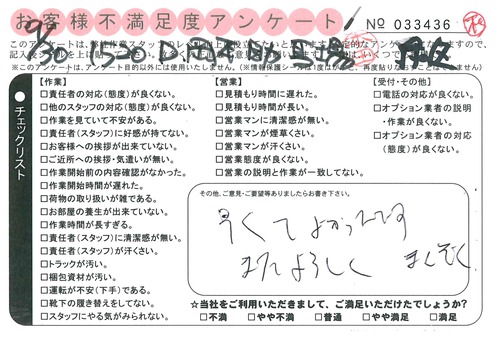 お客様不満足度アンケート
No 033436
チェックリスト
【作業】
□責任者の対応(態度)が良くない。
□他のスタッフの対応(態度)が良くない。
□作業を見ていて不安がある。
□責任者(スタッフ)に好感が持てない。
□お客様への挨拶が出来ていない。
□ご近所への挨拶・気遣いが無い。
□作業開始前の内容確認がなかった。
□作業開始時間が遅れた。
□荷物の取り扱いが雑である。
□お部屋の養生が出来ていない。
□作業時間が長すぎる。
□責任者(スタッフ)に清潔感が無い。
□責任者(スタッフ)が汗くさい。
□トラックが汚い。
□梱包資材が汚い。
□運転が不安(下手)である。
□靴下の履き替えをしてない。
□スタッフにやる気がみられない。
【営業】
□見積もり時間に遅れた。
□見積もり時間が長い。
□営業マンに清潔感が無い。
□営業マンが煙草くさい。
□営業マンが汗くさい。
□営業態度が良くない。
□営業の説明と作業が一致してない。
【受付・その他】
□電話の対応が良くない。
□オプション業者の説明
・作業が良くない。
□オプション業者の対応
(態度)が良くない。
その他、ご意見・ご要望等ありましたらお書き下さい。
早くてよかったです
またよろしく
まんぞく
☆当社をご利用いただきまして、ご満足いただけたでしょうか?
□不満 □やや不満 □普通 □やや満足 □満足